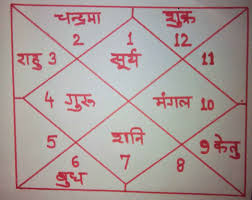 चन्द्रमा शुक्र
2 1 12
राहु 3 सूर्य 11
4 गुरू मंगल 10
5 शनि 9 केतु
6 7 8
बुध